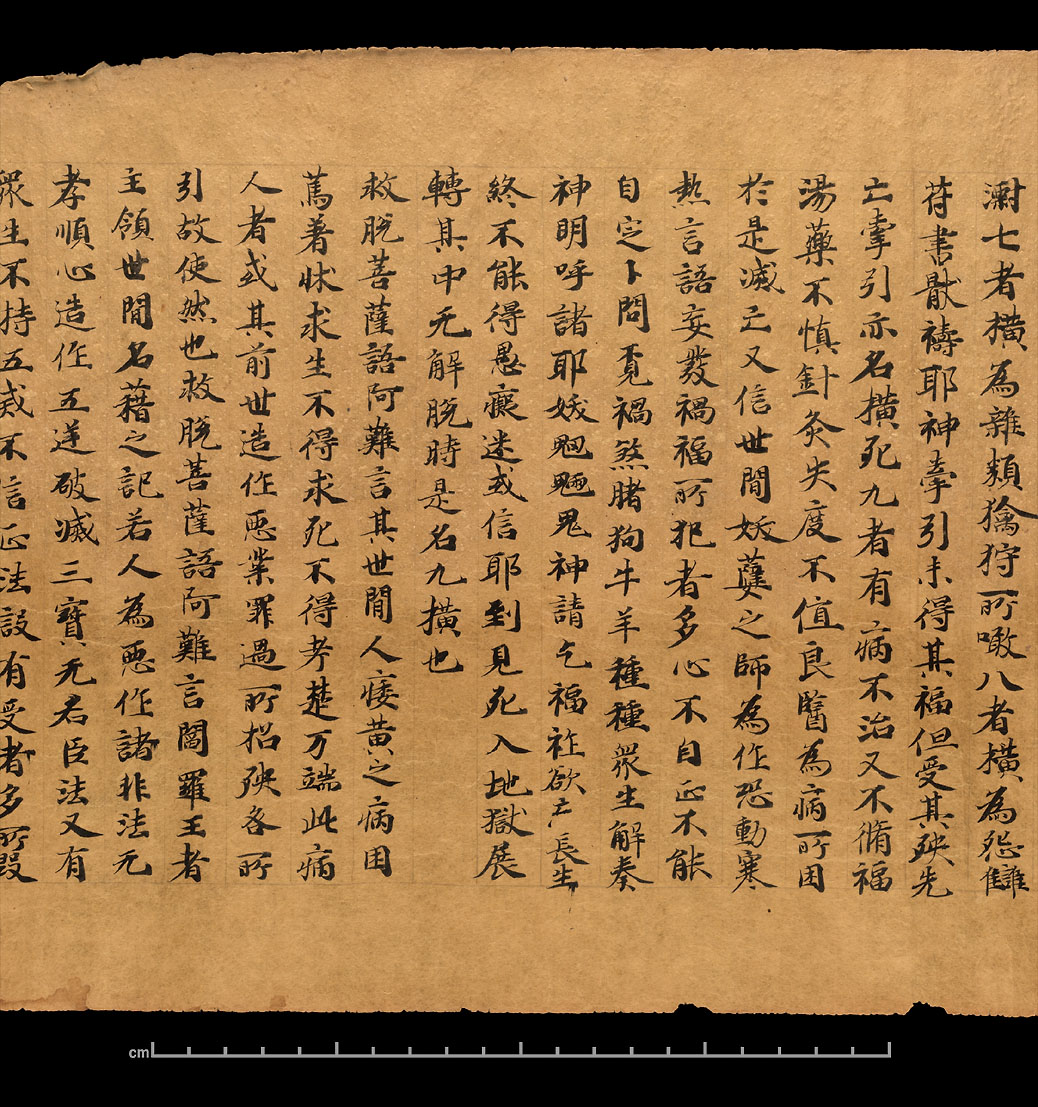 溺七者橫為雜類獦狩所噉八者橫為怨讎
苻書猒禱耶神牽引未得其福但受其殃先
亡牽引亦名橫死九者有病不治又不脩福
湯藥不慎針灸失度不值良醫為病所困
於是滅亡又信世間妖㜸之師為作恐動寒
熱言語妄發禍福所犯者多心不自正不能
自定卜問覓禍煞豬狗牛羊種種眾生解奏
神明呼諸耶妖魍魎鬼神請乞福祚欲亡長生
終不能得愚癡迷或信耶到見死入地獄展
轉其中无解脫時是名九橫也
救脫菩薩語阿難言其世間人痿黃之病困
蔫著牀求生不得求死不得考楚万端此病
人者或其前世造作惡業罪過所招殃各所
引故使然也救脫菩薩語阿難言閻羅王者
主領世間名藉之記若人為惡作諸非法无
孝順心造作五逆破滅三寶无君臣法又有
眾生不持五戒不信正法設有受者多所毀